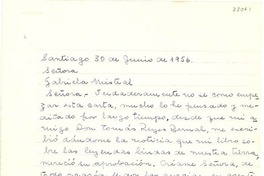 Santiago 30 de Junio de 1956.
Señora
Gabriela Mistral
Señora,- Verdaderamente no se como empe-
zar esta carta, mucho lo he pensado y me-
ditado por largo tiempo, desde que mi a-
migo Don Tomás Reyes Bernal, me escri-
bió dándome la noticia que mi libro so-
bre las leyendas lindas de nuestra tierra,
mereció su aprobación. Créame Señora, de